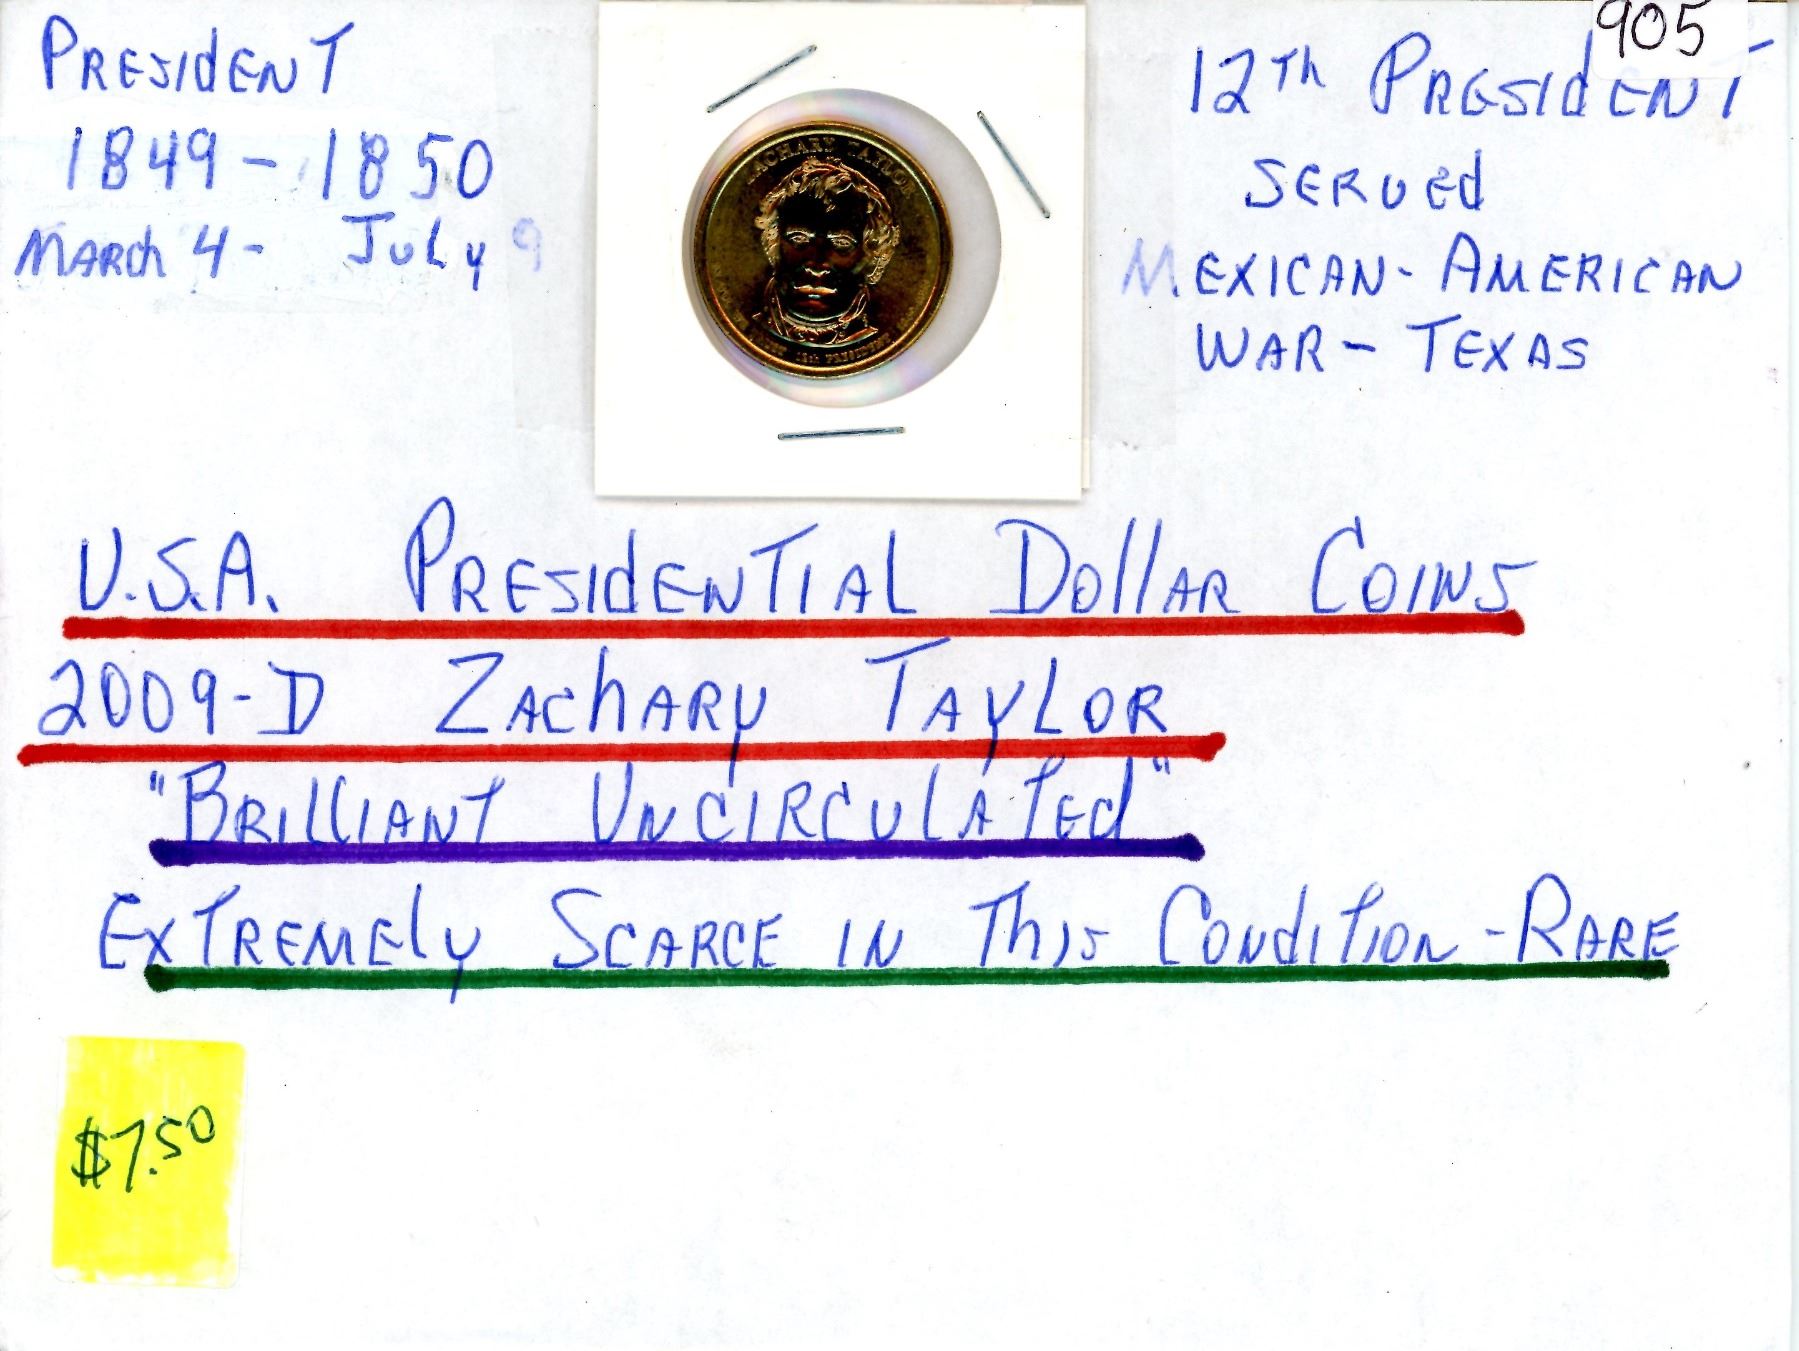 905
PRESIdENT
1849-1850
MARch 4- July 9
ZACHARY TAYLOR
12th PRESIDENT
12Th PRESIdENT
SERVEd
MEXICAN-AMERICAN
WAR-TEXAS
U.S.A. PRESIdENTIAL DollAR COINS
2009-D ZAChARy TAyLOR
"BRIllIANT UNCIRCULATEd"
EXTREMEly SCARCE IN ThIS CONdITION-RARE
$7.50